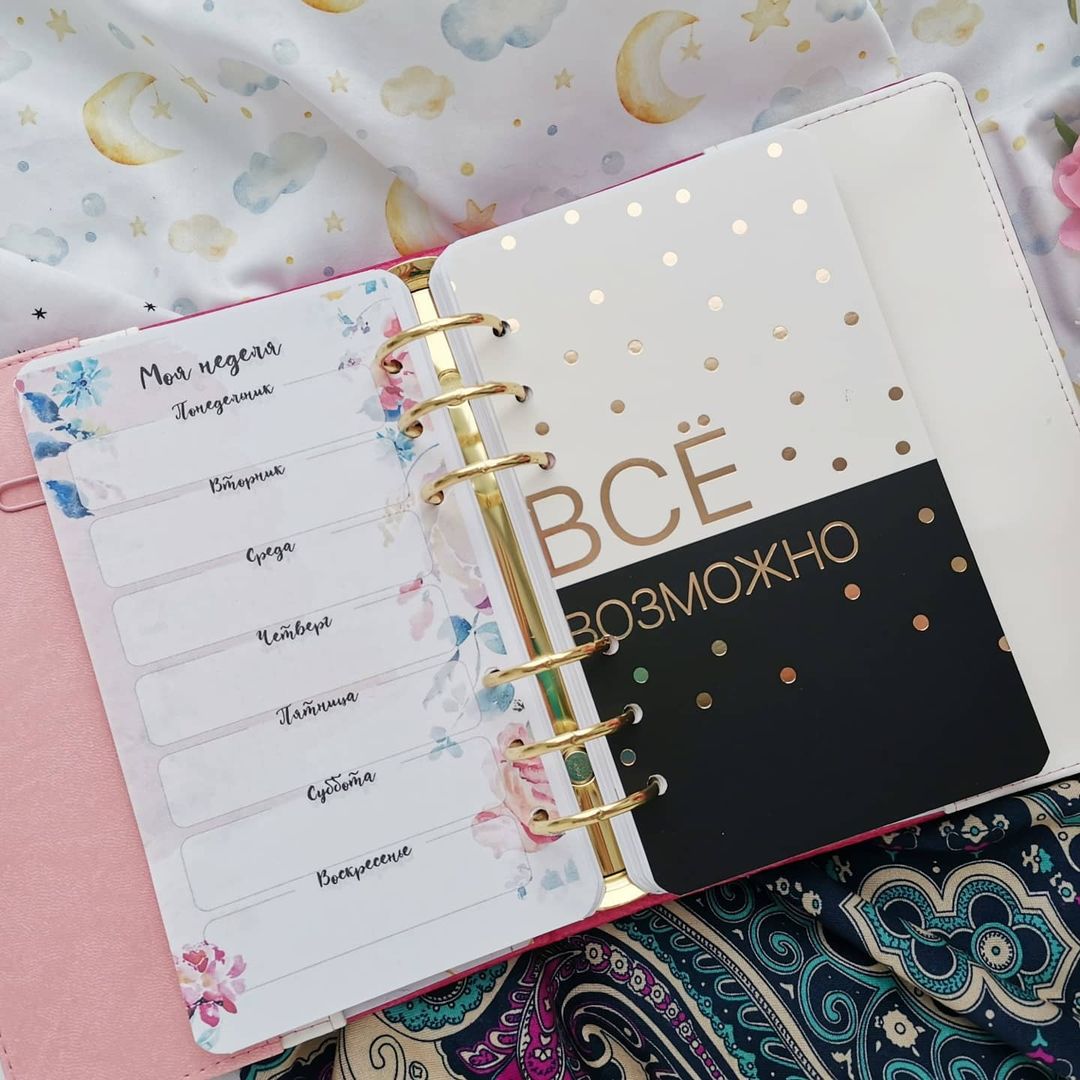 Моя неделя
Понедельник
Вторник
Среда
Четверг
Пятница
Суббота
Воскресенье
ВСЁ
ВОЗМОЖНО